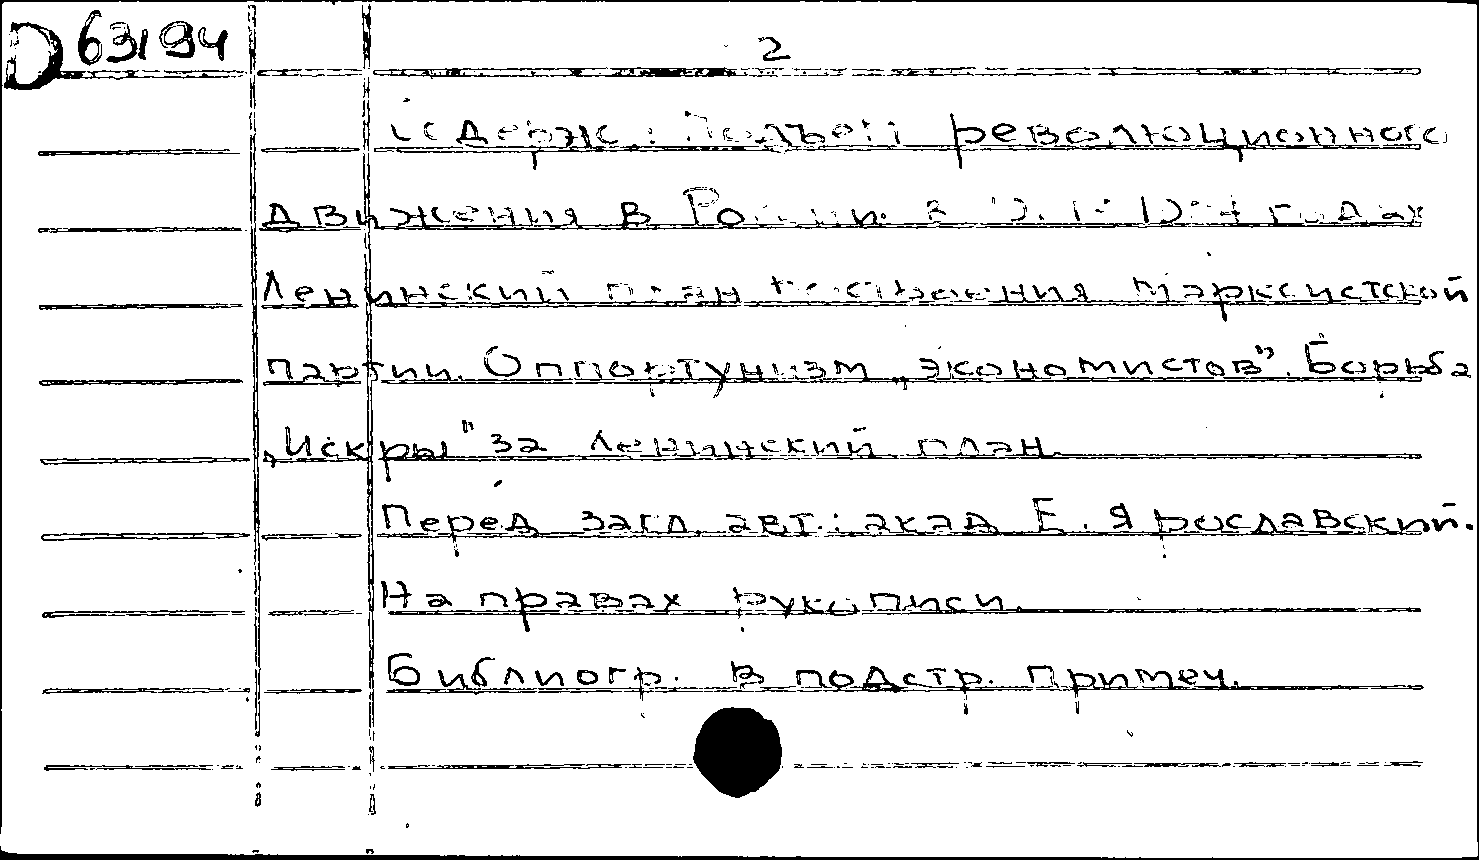 D 63/94
2
Содерж.: Подъем революционного
движения в России в годах
Ленинский план построения марксистской
партии. Оппортунизм „экономистов”. Борьба
„Искры" за Ленинский план.
Перед загл. авт.: акад Е. Ярославский.
На правах рукописи.
Библиогр. в подстр. примеч.